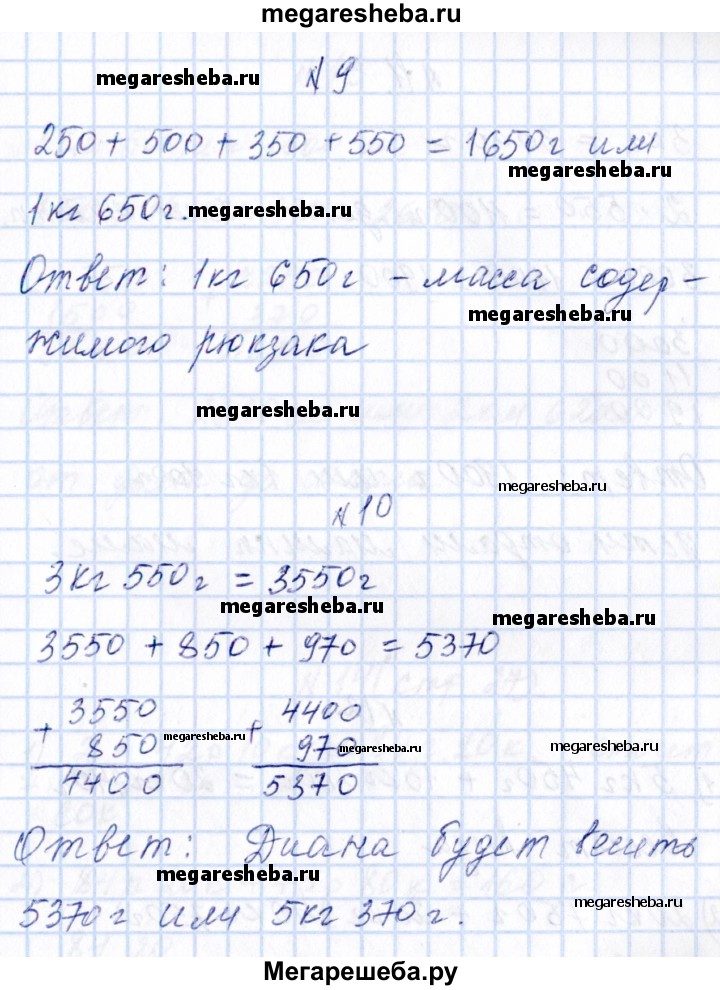 megaresheba.ru
megaresheba.ru
№ 9
250 + 500 + 350 + 550 = 1650г или
megaresheba.ru
1кг 650г. megaresheba.ru
Ответ: 1кг 650г – масса содер-
megaresheba.ru
жимого рюкзака
megaresheba.ru
megaresheba.ru
№10
3кг 550г = 3550г
megaresheba.ru
megaresheba.ru
3550 + 850 + 970 = 5370
+ 3550 + 4400
850 megaresheba.ru 970 megaresheba.ru megaresheba.ru
4400 5370
Ответ: Диана будет весить
megaresheba.ru
5370г или 5кг 370г. megaresheba.ru
Мегарешеба.ру